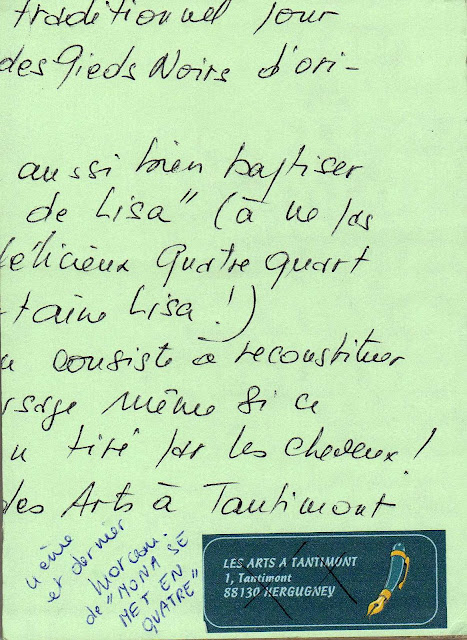 traditionnel pour
des Pieds Noirs d'ori-
aussi bien baptiser
de Lisa" (à ne pas
délicieux Quatre quart
taine Lisa !)
consiste à reconstituer
même si ce
tiré par les cheveux !
des Arts à Tantimont
et dernier
morceau.
de "MONA SE
MET EN
QUATRE"
LES ARTS A TANTIMONT
1, Tantimont
88130 HERGUGNEY